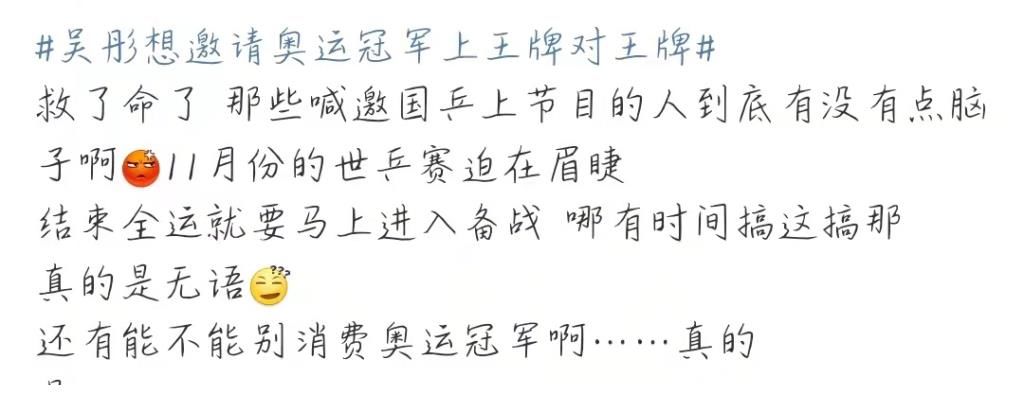 #吴彤想邀请奥运冠军上王牌对王牌#
救了命了 那些喊邀国乒上节目的人到底有没有点脑
子啊😡11月份的世乒赛迫在眉睫
结束全运就要马上进入备战 哪有时间搞这搞那
真的是无语
还有能不能别消费奥运冠军啊……真的